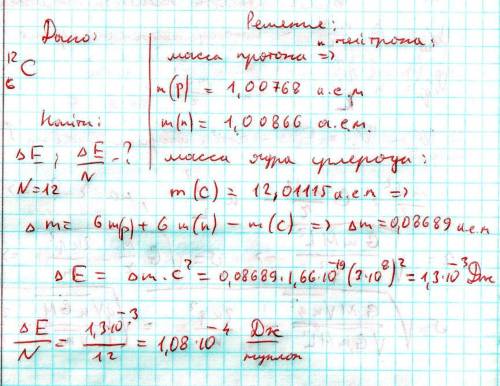 Дано:
¹²₆C
Найти:
ΔE; ΔE/N - ?
N=12
Решение:
масса протона и нейтрона: =>
m(p) = 1,00768 а.е.м
m(n) = 1,00866 а.е.м.
масса ядра углерода:
m(C) = 12,01115 а.е.м =>
Δm = 6m(p) + 6m(n) - m(C) => Δm = 0,08689 а.е.м
ΔE = Δm·c² = 0,08689·1,66·10⁻¹⁹(3·10⁸)² = 1,3·10⁻³ Дж
ΔE/N = 1,3·10⁻³/12 = 1,08·10⁻⁴ Дж/нуклон